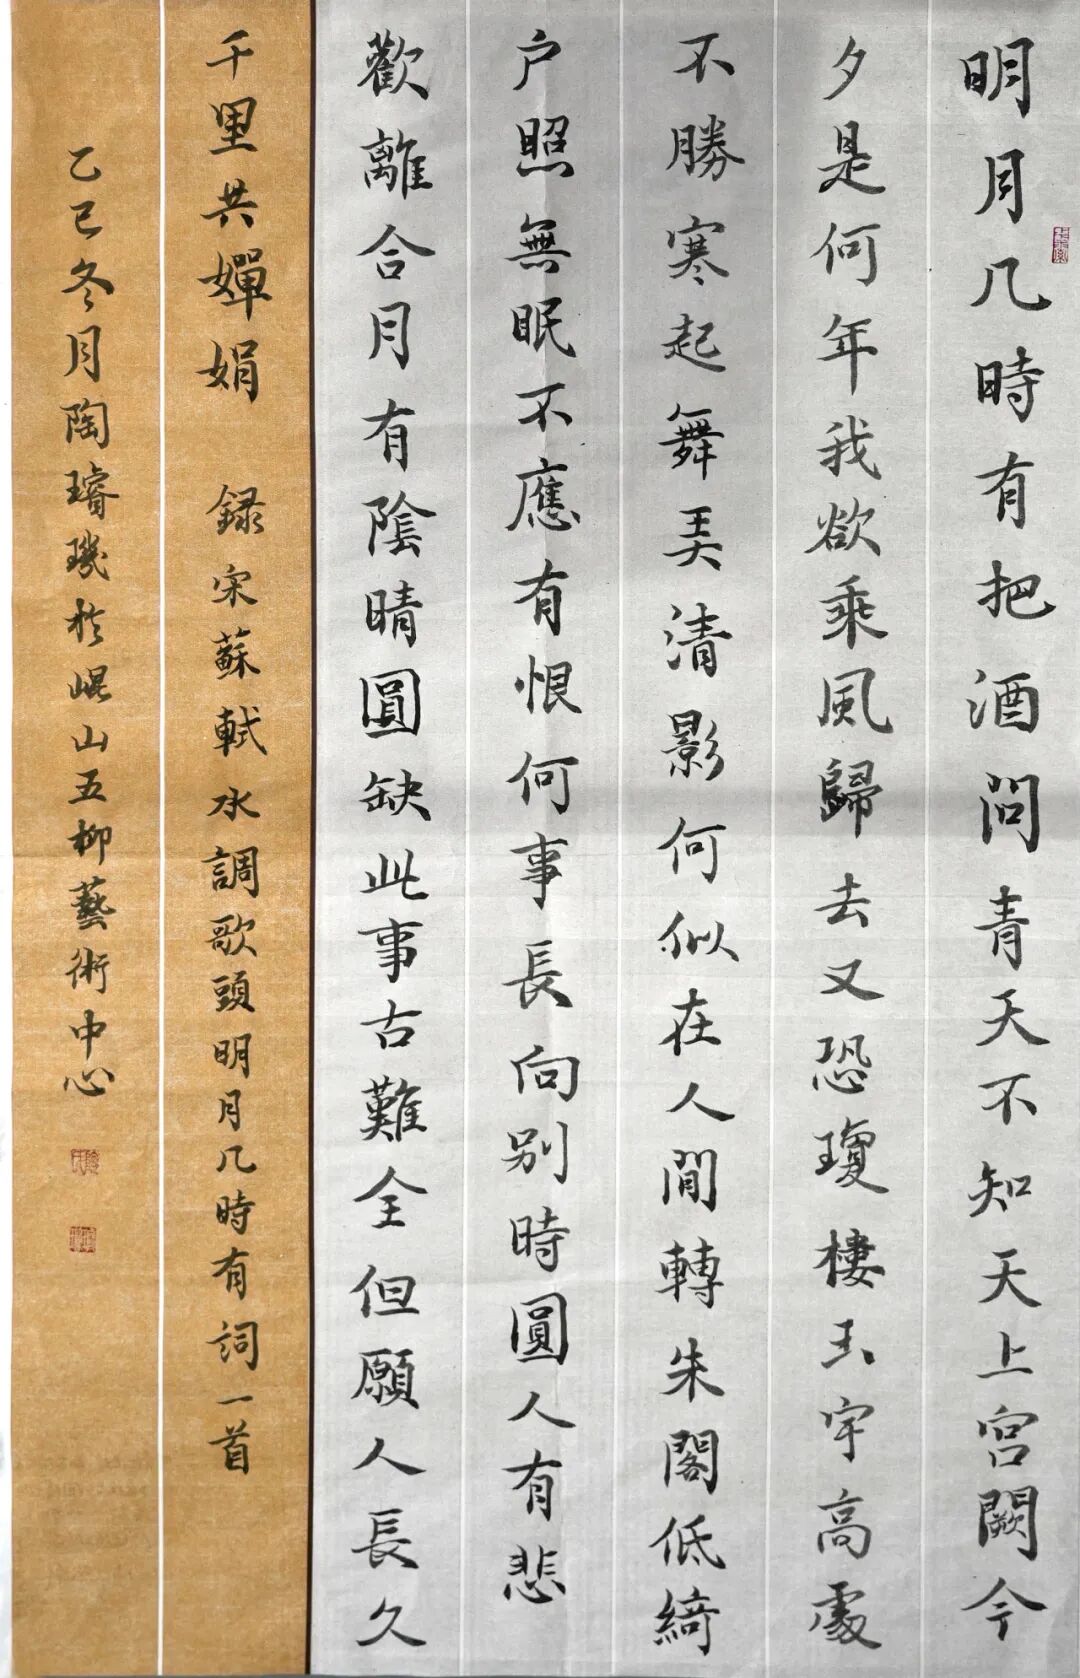 明月几時有把酒問青天不知天上宮闕今
夕是何年我欲乘風歸去又恐瓊樓玉宇高處
不勝寒起舞弄清影何似在人間轉朱閣低綺
户照無眠不應有恨何事長向别時圓人有悲
歡離合月有陰晴圓缺此事古難全但願人長久
千里共嬋娟 録宋蘇軾水調歌頭明月几時有詞一首
乙巳冬月陶璿璣於崐山五柳藝術中心